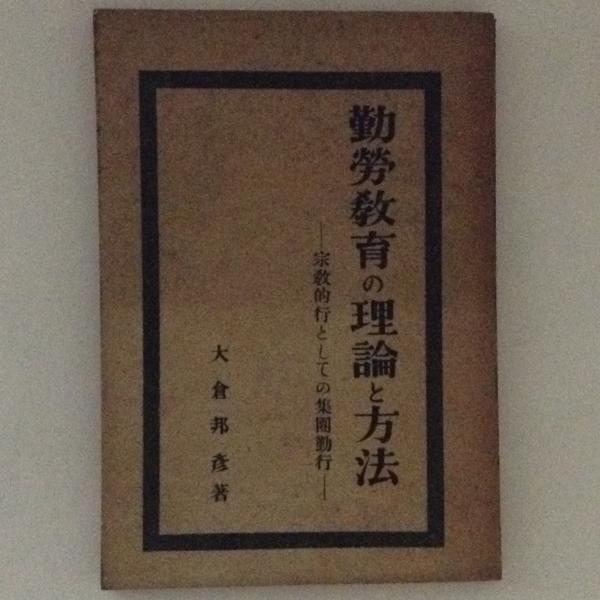 勤勞教育の理論と方法
―宗教的行としての集團勤行―
大倉邦彦著